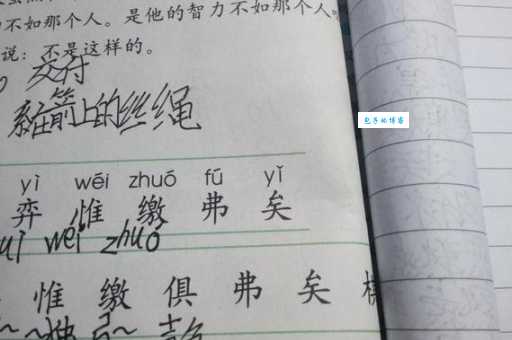 不如那个人。是他的智力不如那个人
说：不是这样的。
交付
系在箭上的丝绳
包子的博客
yì wēi zhuó fú yǐ
弈 惟 缴 弗 矣
wéi zhuó
惟 缴 俱 弗 矣